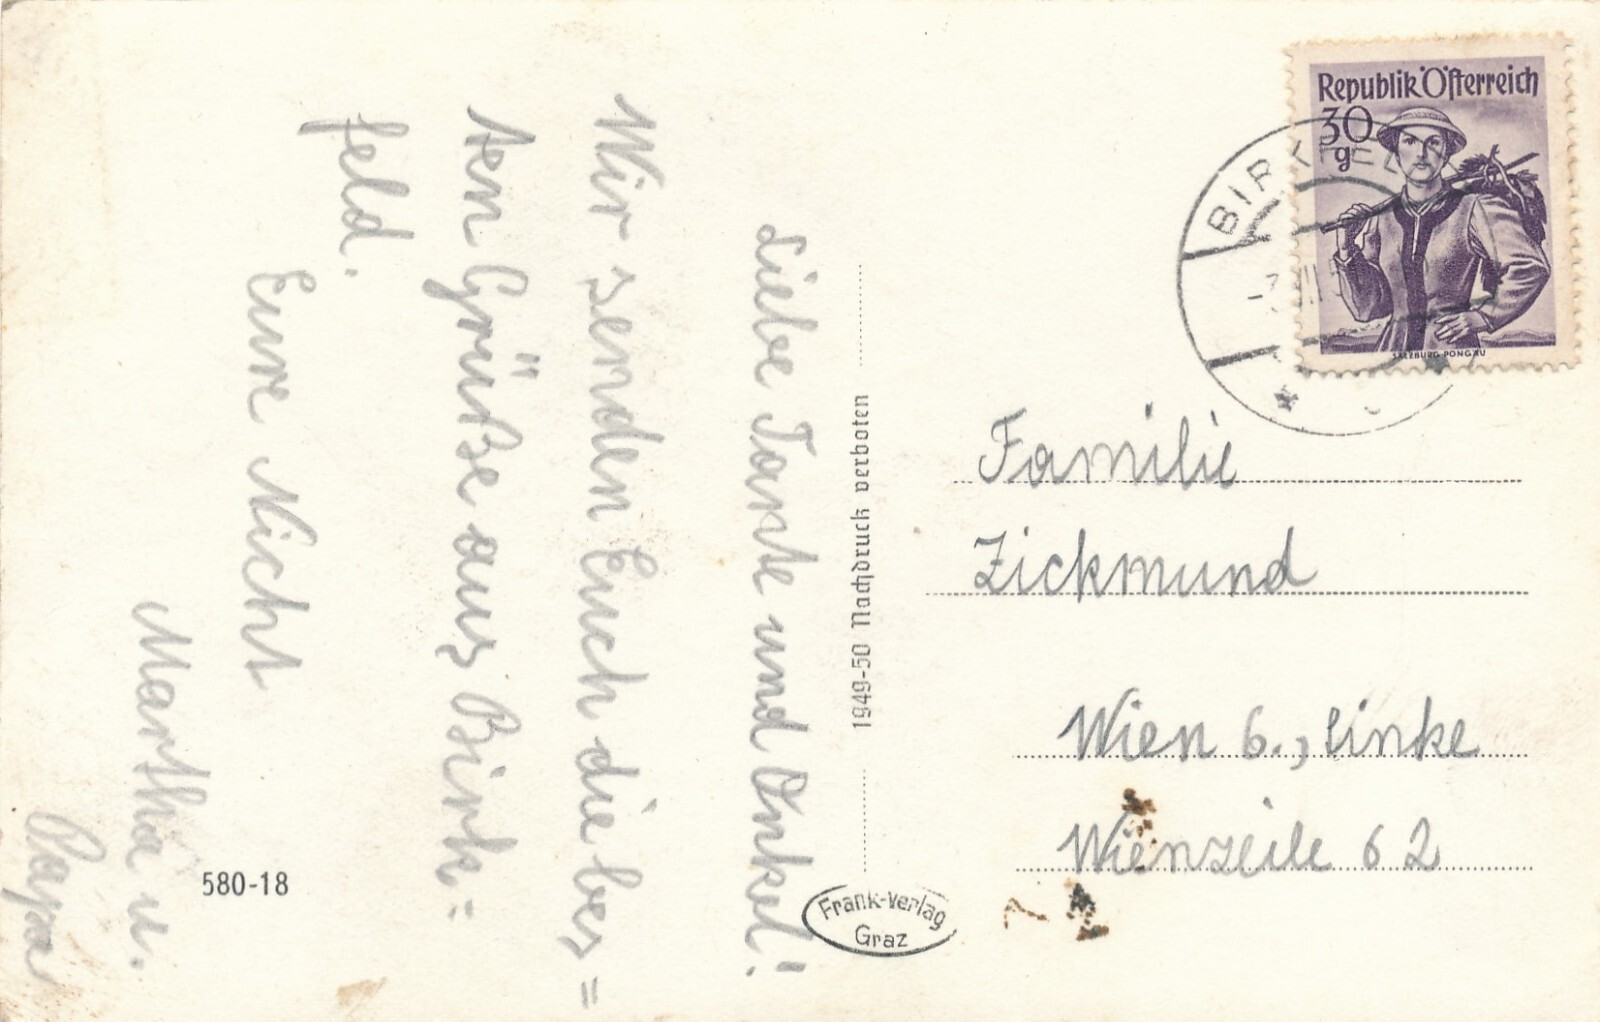 Liebe Tante und Onkel!
Wir senden Euch die bes=
ten Grüße aus Birk=
feld.
Eure Nicht
Martha u.
Papa
580-18
1949-50 Nachdruck verboten
Frank-Verlag
Graz
Republik Österreich
30
g
SALZBURG-PONGAU
Familie
Zickmund
Wien 6., linke
Wienzeile 62